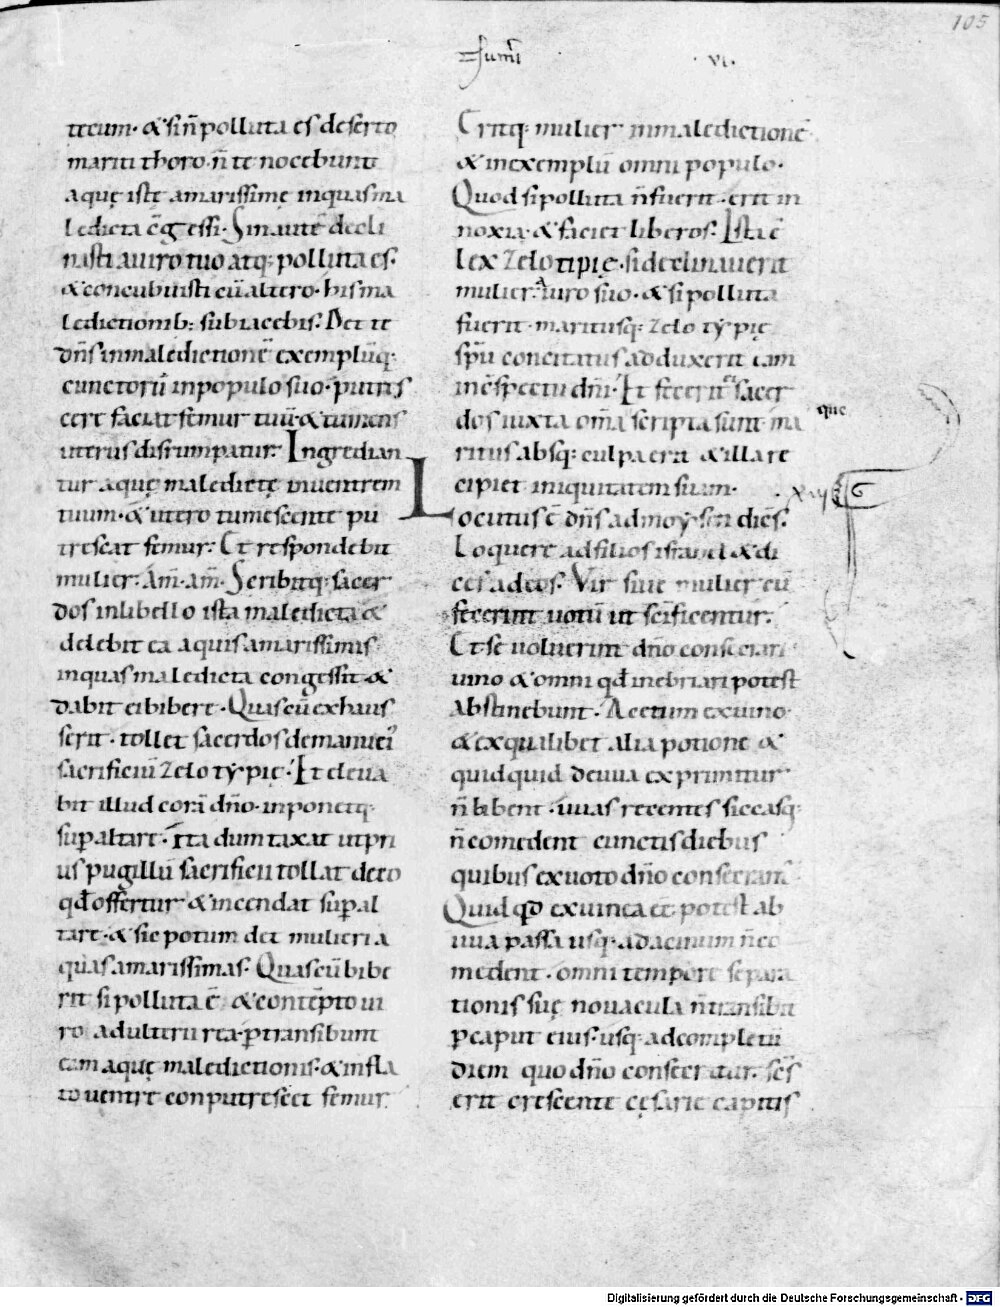 105
numĩ
·vi·
tecum· & si ñ polluta es deserto
mariti thoro· ñ te nocebunt
aquę istę amarissimę in quas ma
ledicta c̄gessi· Sin autē decli
nasti a viro tuo atq; polluta es·
& concubuisti cū altero· his ma
ledictionib; subiacebis: Det te
dñs in maledictionē exemplūq;
cunctorū in populo suo· putres
cere faciat femur tuū· & tumens
uterus disrumpatur· Ingredian
tur aquę maledictę in ventrem
tuum· & utero tumescente pu
trescat femur: Et respondebit
mulier· Am̄· am̄· Scribitq; sacer
dos in libello ista maledicta &
delebit ea aquis amarissimis
in quas maledicta congessit· &
dabit ei bibere· Quas cū exhaus
serit· tollet sacerdos de manu ei'
sacrificiū zelotypię· Et eleva
bit illud corā dño· inponetq;
sup altare· ita dumtaxat ut pri
us pugillū sacrificii tollat de eo
qd̄ offertur & incendat sup al
tare· & sic potum det mulieri a
quas amarissimas· Quas cū bibe
rit si polluta ē & contēpto vi
ro adulterii rea· ptransibunt
eam aquę maledictionis· & infla
to ventre conputrescet femur·
Eritq; mulier in maledictionē
& in exemplū omni populo·
Quod si polluta ñ fuerit· erit in
noxia· & faciet liberos: Ista ē
lex zelotipię· si declinaverit
mulier a viro suo· & si polluta
fuerit· maritusq; zelotypię
spū concitatus adduxerit eam
in c̄spectu dñi· Et fecerit ei sacer
dos iuxta om̄a que scripta sunt ma
ritus absq; culpa erit & illa re
cipiet iniquitatem suam·
Locutus ē dñs ad moysen dicēs:
Loquere ad filios israhel & di
ces ad eos· Vir sive mulier cū
fecerint votū ut sc̄ificentur·
Et se voluerint dño consecrari
vino & omni qd̄ inebriari potest
abstinebunt· Acetum ex vino·
& ex qualibet alia potione &
quidquid de uva exprimitur
ñ bibent· uvas recentes siccasq;
ñ comedent cunctis diebus
quibus ex voto dño consecrant̄·
Quid qd ex vinea eē potest ab
uva passa usq; ad acinum ñ co
medent· omni tempore separa
tionis suę novacula ñ transibit
p caput eius· usq; ad completū
diem quo dño consecratur· sc̄s
erit crescente cęsarie capitis
Digitalisierung gefördert durch die Deutsche Forschungsgemeinschaft - DFG